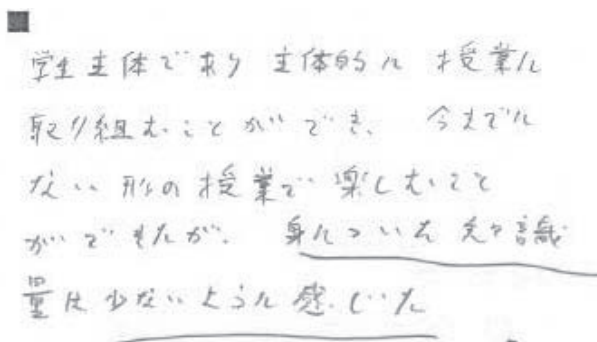 学生主体であり 主体的に 授業に
取り組むことができ、今までに
ない形の授業で楽しむこと
ができたが、身についた知識
量は少ないように感じた